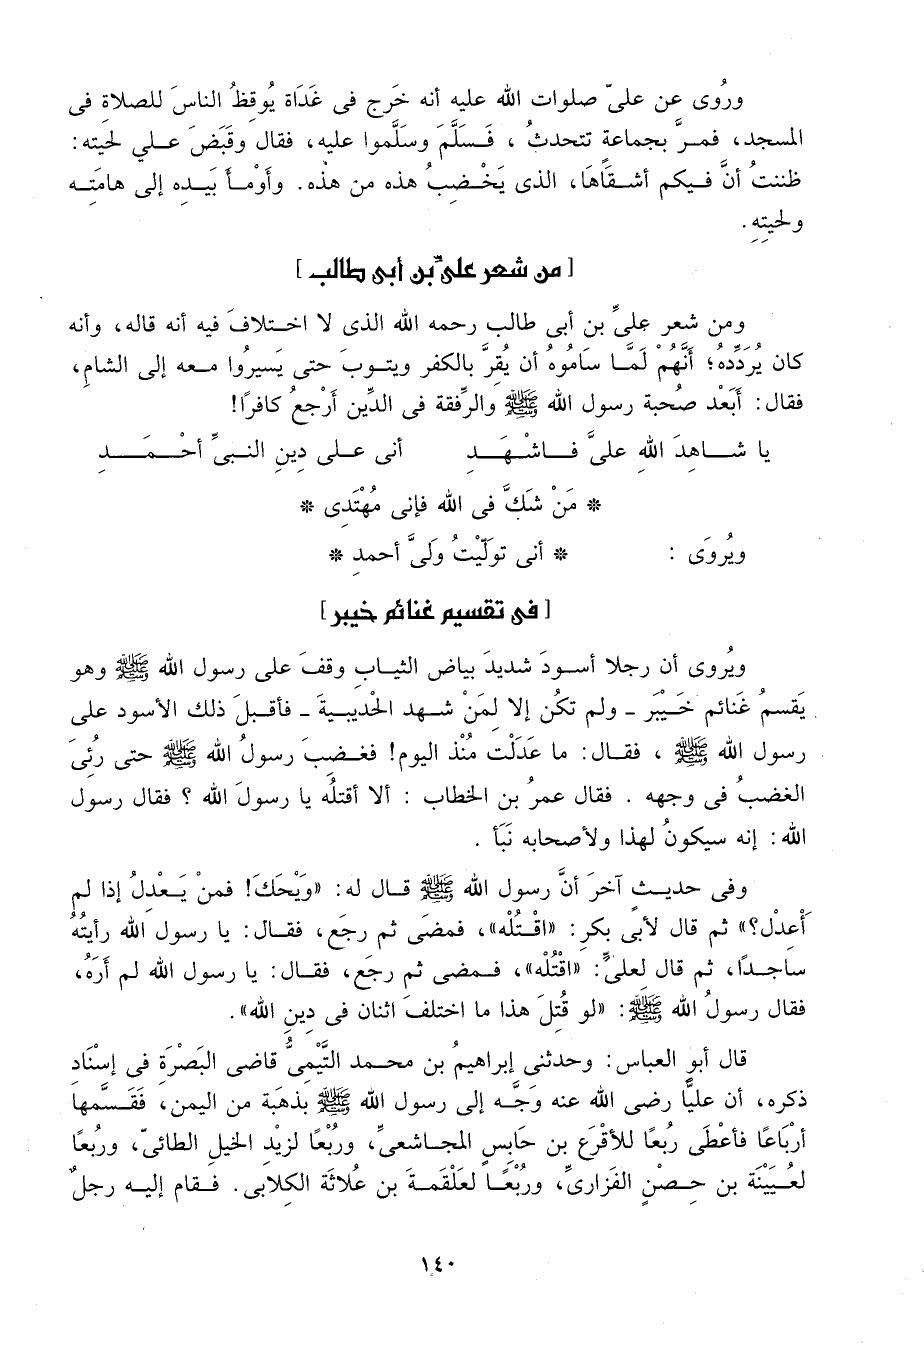 ورُوى عن علىّ صلوات الله عليه أنه خَرَج فى غَدَاة يُوقِظُ الناسَ للصلاة فى
المسجد، فمرَّ بجماعةٍ تتحدثُ ، فَسلَّمَ وسلَّموا عليه، فقال وقَبَضَ علي لحيته:
ظننتُ أنَّ فيكم أشقَاهَا، الذى يَخْضِبُ هذه من هذه. وأوْمأ بَيِده إلى هامَتِه
ولحيتِهِ.
[ من شعر علىّ بن أبى طالب ]
ومن شعر علىِّ بن أبى طالب رحمه الله الذى لا اختلافَ فيه أنه قاله، وأنه
كان يُرَدِّدهُ؛ أنَّهُم لَمَّا سامُوهُ أن يُقِرَّ بالكفر ويتوبَ حتى يَسيرُوا معه إلى الشامِ،
فقال: أبَعْد صُحبة رسول الله ﷺ والرِّفقة فى الدِّين أَرْجعُ كافرًا!
يا شاهِدَ اللهِ علىَّ فاشْهَدِ أنى على دِينِ النبىِّ أحْمَدِ
* مَنْ شَكَّ فى الله فإنى مُهْتَدِى *
ويُروَى : * أنى تولَّيْتُ ولَىَّ أحمدِ *
[ فى تقسيم غنائم خيبر ]
ويُروى أن رجلا أسودَ شديدَ بياض الثياب وقفَ على رسول الله ﷺ وهو
يَقسِمُ غَنائم خَيْبَر ـ ولم تكُن إلا لمَنْ شهد الحديبيةَ ـ فأقبلَ ذلك الأسود على
رسول الله ﷺ ، فقال: ما عَدَلْت مُنْذ اليوم! فغضبَ رسولُ الله ﷺ حتى رُئىَ
الغضبُ فى وجهه . فقال عمرُ بن الخطاب : ألا أقتلُه يا رسولَ الله ؟ فقال رسول
الله: إنه سيكونُ لهذا ولأصحابه نَبَأ .
وفى حديثٍ آخرَ أنَّ رسول الله ﷺ قال له: «وَيْحَكَ! فمنْ يَعْدِلُ إذا لم
أَعدِلْ؟» ثم قال لأبى بكرٍ: «اقْتُلْه»، فمضَى ثم رجَع، فقال: يا رسول الله رأيتُهُ
ساجدًا، ثم قال لعلىٍّ: «اقْتُلْه»، فمضى ثم رجَع، فقال: يا رسول الله لم أَرَهُ،
فقال رسولُ الله ﷺ: «لو قُتلَ هذا ما اختلفَ اثنان فى دِينِ الله».
قال أبو العباس: وحدثنى إبراهيمُ بن محمد التَّيْمىُّ قاضِى البَصْرَة فى إسْنَادٍ
ذكره، أن عليًّا رضى الله عنه وَجَّه إلى رسول الله ﷺ بذهَبة من اليمن، فقَسَّمها
أرْبَاعًا فأعْطَى رُبعًا للأقْرَع بن حَابِسٍ المجاشعىِّ، ورُبْعًا لزيْد الخيل الطائىّ، ورُبعًا
لعُيَيْنَة بن حِصْنٍ الفَزارىِّ، ورُبْعًا لعَلْقمةَ بن عُلاثَة الكلابى. فقام إليه رجلٌ
١٤٠